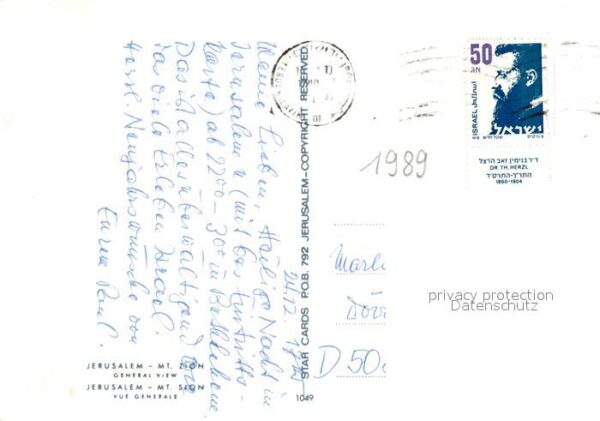 24.12. 17²⁰
Meine Lieben, Heilige Nacht in
Jerusalem u. (mit bes. Eintritts-
karte) ab 22⁰⁰ - 3⁰⁰ in Bethlehem
Das ist alles überwältigend
ja viele Erleben Israel.
Herzl. Neujahrswünsche von
Eurem Paul.
JERUSALEM – MT. ZION
GENERAL VIEW
JERUSALEM – MT. SION
VUE GENERALE
STAR CARDS P.O.B. 792 JERUSALEM–COPYRIGHT RESERVED
1049
1989
50
אג
ISRAEL
ישראל
ד״ר בנימין זאב הרצל
DR. TH. HERZL
התר״ך-התרס״ד
1860-1904
D 50
privacy protection
Datenschutz